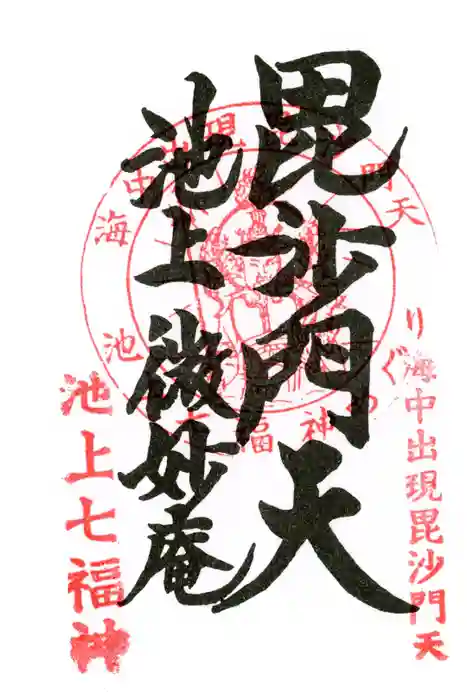 海中出現毘沙門天
毘沙門天
池上 微妙庵
池上七福神
海中出現 門天
池 七福神めぐり